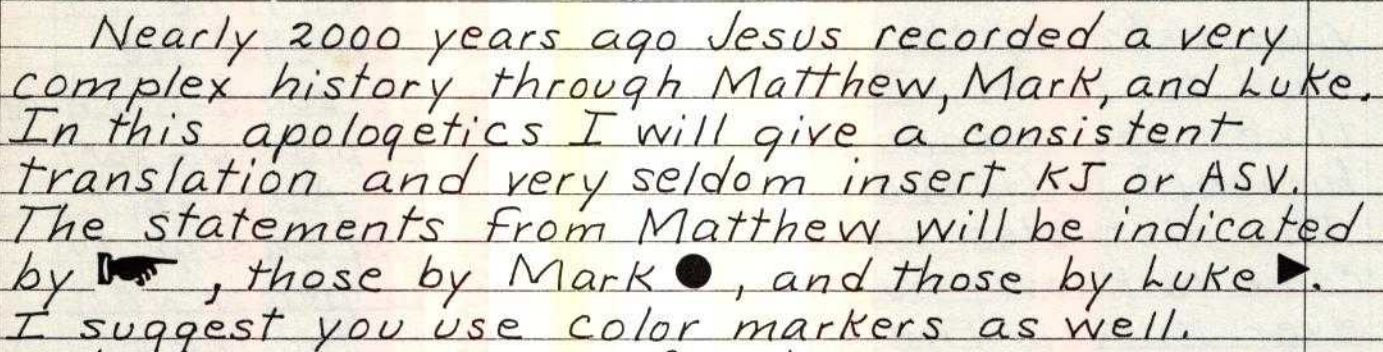 Nearly 2000 years ago Jesus recorded a very
complex history through Matthew, Mark, and Luke.
In this apologetics I will give a consistent
translation and very seldom insert KJ or ASV.
The statements from Matthew will be indicated
by ☛, those by Mark ●, and those by Luke ▶.
I suggest you use color markers as well.